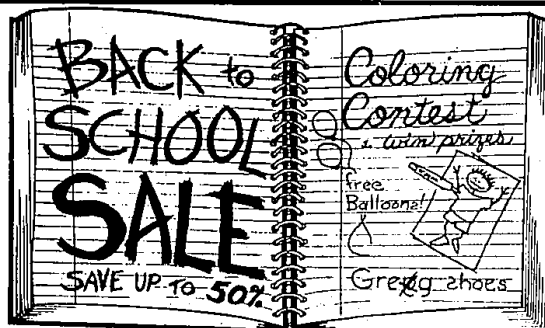 BACK to
SCHOOL
SALE
SAVE UP TO 50%
Coloring
Contest
+ win prizes
free
Balloons!
Greg shoes